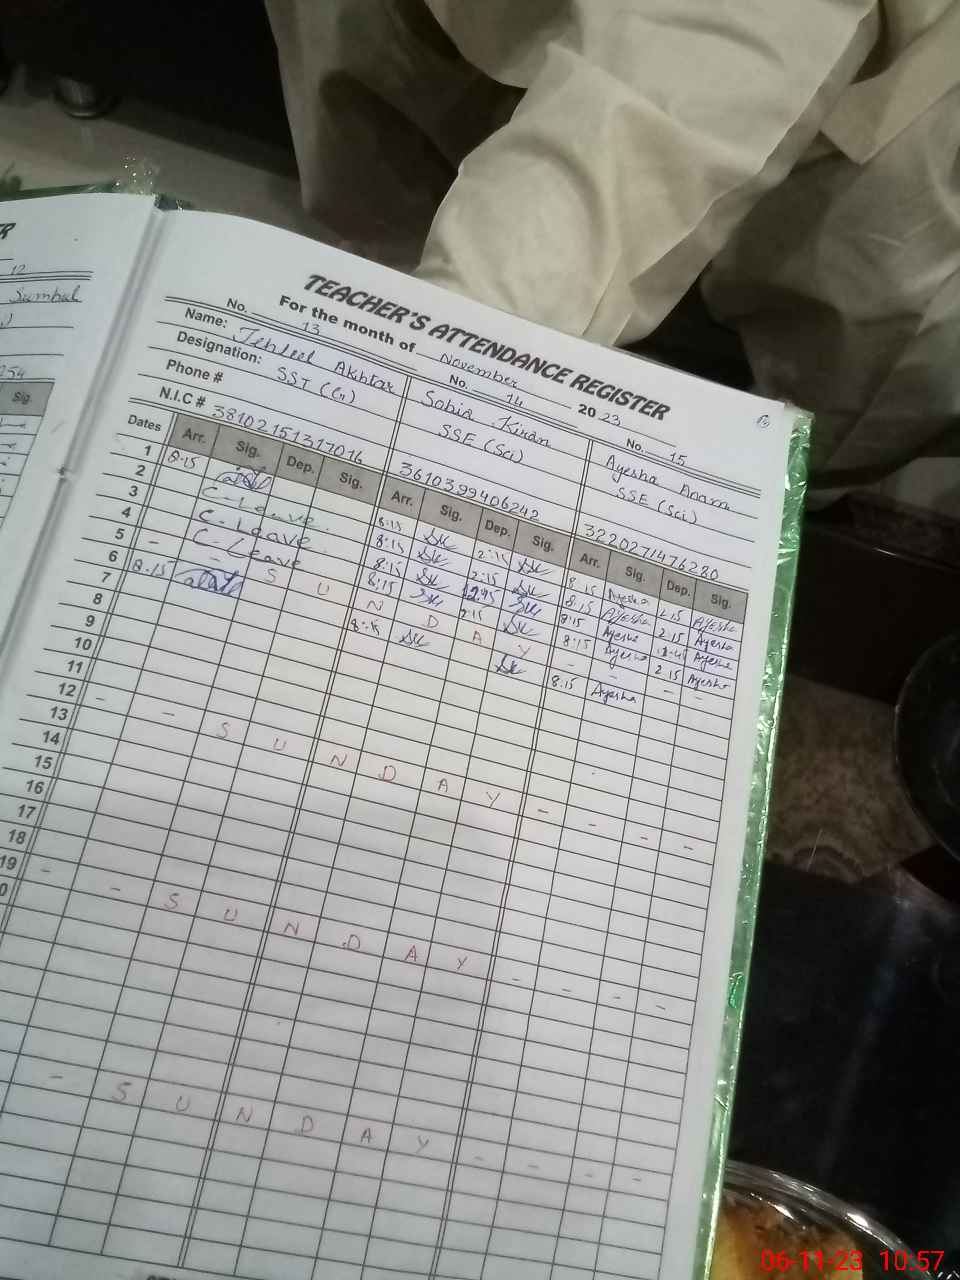 12
Sumbul
254
Sig.
TEACHER'S ATTENDANCE REGISTER
For the month of November 2023
No. 13 No. 14 No. 15
Name: Tehleel Akhtar Sobia Kiran Ayesha Anam
Designation: SST (G) SSE (Sci) SSE (Sci)
Phone #
N.I.C # 38102151317016 3610399406242 3220271476280
Dates Arr. Sig. Dep. Sig. Arr. Sig. Dep. Sig. Arr. Sig. Dep. Sig.
1 8.15 8:15 2:15 8.15 Ayesha 2.15 Ayesha
2 C-Leave. 8:15 2:15 8.15 Ayesha 2.15 Ayesha
3 C-Leave 8:15 12:45 8:15 Ayesha Ayesha
4 C-Leave 8:15 2:15 8:15 Ayesha 2.15 Ayesha
5 - - S U N D A Y - - - -
6 8.15 8:15 8.15 Ayesha
7
8
9
10
11
12 - - S U N D A Y - - - -
13
14
15
16
17
18
19 - - S U N D A Y - - - -
0
- S U N D A Y - - - -
06-11-23 10:57